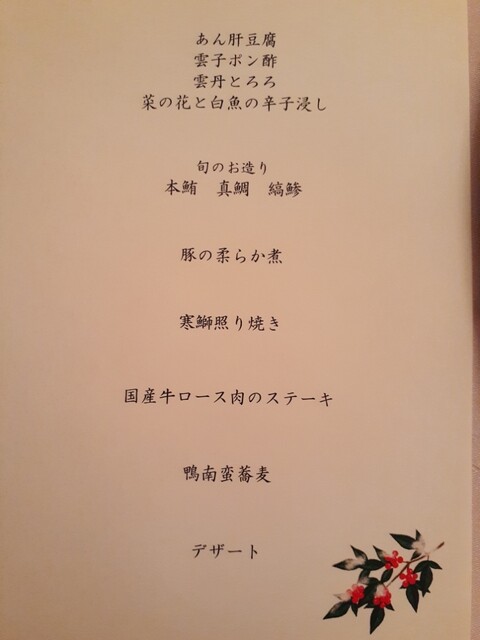 あん肝豆腐
雲子ポン酢
雲丹とろろ
菜の花と白魚の辛子浸し
旬のお造り
本鮪　真鯛　縞鯵
豚の柔らか煮
寒鰤照り焼き
国産牛ロース肉のステーキ
鴨南蛮蕎麦
デザート